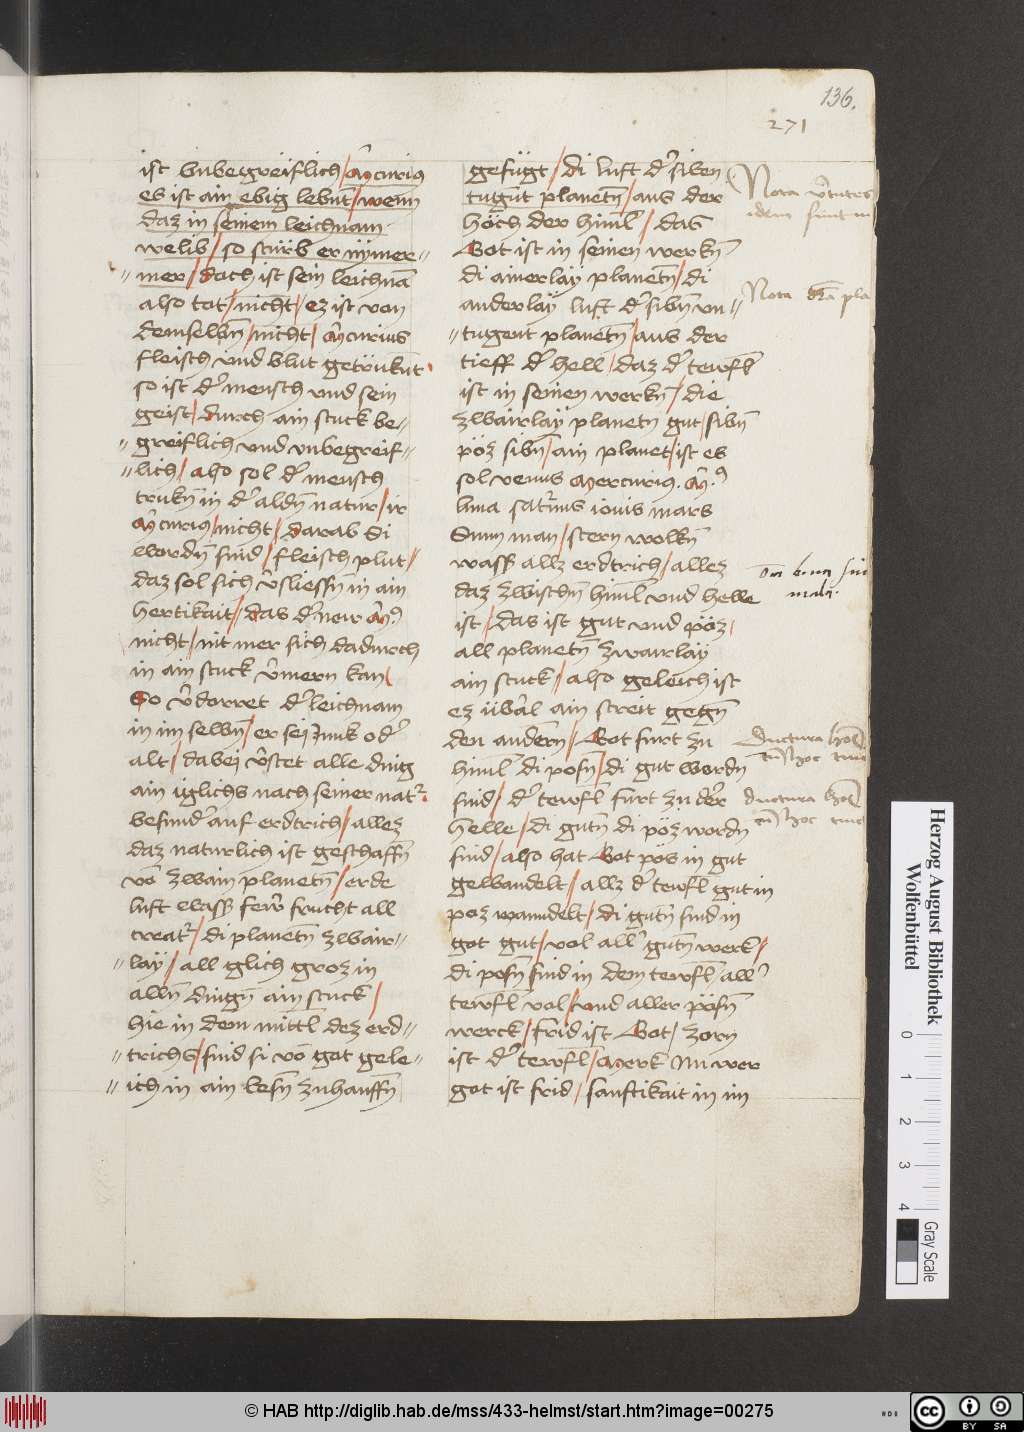 136.
271
ist vnbegreiflich / m̂curius
es ist ain ebig lebn̄t / wenn
daz in seinem leichnam
welib / so stürb er nÿmer
mer / doch ist sein leichnā
also tot / nicht / ez ist von
demselbn̄ / nicht / m̂curius
fleisch vnd blut getrukn̄t
so ist d' mensch vnd sein
geist / durch ain stuck be-
greiflich vnd vnbegreif-
lich / also sol d' mensch
trukn̄ in d' aldn̄ natur / ir
m̂curius / nicht / darab di
wordn̄ sind / fleisch plut /
daz sol sich v̂sliessn̄ in ain
hertikait / das d' new m̂.
nicht / nit mer sich dadurch
in ain stuck v̂mern kan
So v̂dorret d' leichnam
in im selbn̄ / er sei junk od'
alt / dabei v̂stet alle ding
ain iglichs nach seiner nat'
besund' auf erdtrich / allez
daz naturlich ist geschaffn̄
vō zwain planetn̄ / erde
luft wass' few̄r frucht all
creat' / di planetn̄ zwair-
laÿ / all glich groz in
alln̄ dingn̄ ain stuck /
hie in dem mittl dez erd-
trichs / sind si vō got gele-
ich in ain lesn̄ zuhauffn̄
gefügt / di luft d' siben
tugūt planetn̄ / aus der
höch der himl / das
Got ist in seinen werkn̄
di ainerlaÿ planetn̄ / di
anderlaÿ luft d' sibn̄ vn-
tugent planetn̄ / aus der
tieff d' hell / daz d' tewfl
ist in seinen werkn̄ / die
zwairlaÿ planetn̄ gut / sibn̄
pöz sibn̄ / ain planet / ist es
sol venus mercurius. m̂.
luna sat'nus iouis mars
Sunn man / stern wolkn̄
wass' allz erdtrich / allez
daz zwischn̄ himl vnd helle
ist / das ist gut vnd pöz /
all planetn̄ zwairlaÿ
ain stuck / also geleich ist
ez üb'al ain streit gegn̄
den andern̄ / Got furt zu
himl di posn̄ / di gut wordn̄
sind / d' tewfl furt zu der
helle / di gutn̄ di pöz wordn̄
sind / also hat Got pös in gut
gewandelt / allz d' tewfl gut in
poz wanndelt / di gutn̄ sind in
got gut / vol all' gutn̄ werk /
di posn̄ sind in dem tewfl / all'
tewfl vol / vnd aller pösn̄
werck / frid ist Got / zorn
ist d' tewfl / merk Nu wer
got ist frid / sanftikait in im
Nota v̂tutes
idem sunt
Nota pla
Ductura
hoc
ductura
hoc
Herzog August Bibliothek
Wolfenbüttel
0 1 2 3 4
Gray Scale
© HAB http://diglib.hab.de/mss/433-helmst/start.htm?image=00275
HAB
CC BY SA